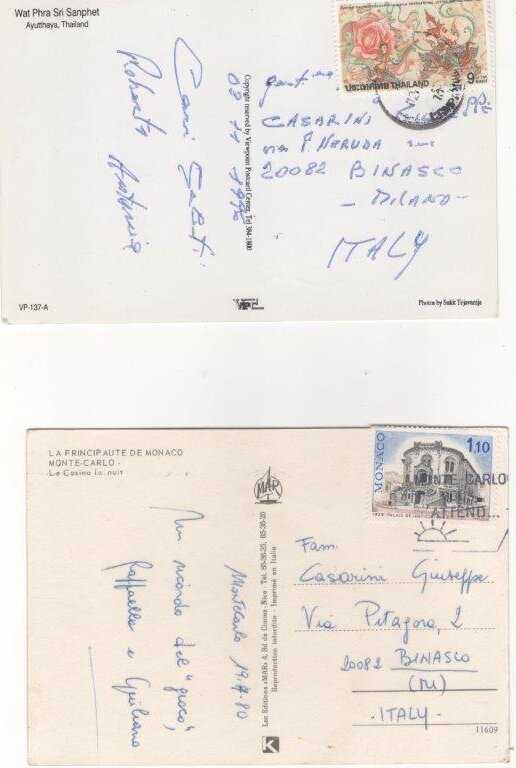 Wat Phra Sri Sanphet
Ayutthaya, Thailand
Cari Saluti
Roberta Antonio
Copyright reserved by Viewpoint Postcard Center, Tel 384-1800
ประเทศไทย THAILAND
6
CASARINI
via P. NERUDA
20082 BINASCO
- MILANO -
ITALY
VP-137-A
VPC
Photos by Sukit Tejavanija
LA PRINCIPAUTE DE MONACO
MONTE-CARLO -
Le Casino la nuit
Un ricordo del "gioco",
Raffaella e Giuliano
Montecarlo 19.7.80
MAR
Les Editions «MAR» 4, Bd de Cimiez, Nice - Tél. 85-36-25, 85-36-26
Reproduction interdite Imprimé en Italie
K
MONACO
1,10
1930 - PALAIS DE JUSTICE
MONTE CARLO
VOUS
ATTEND...
Fam.
Casarini Giuseppe
Via Pitagora, 2
20082 BINASCO
(MI)
- ITALY -
11609